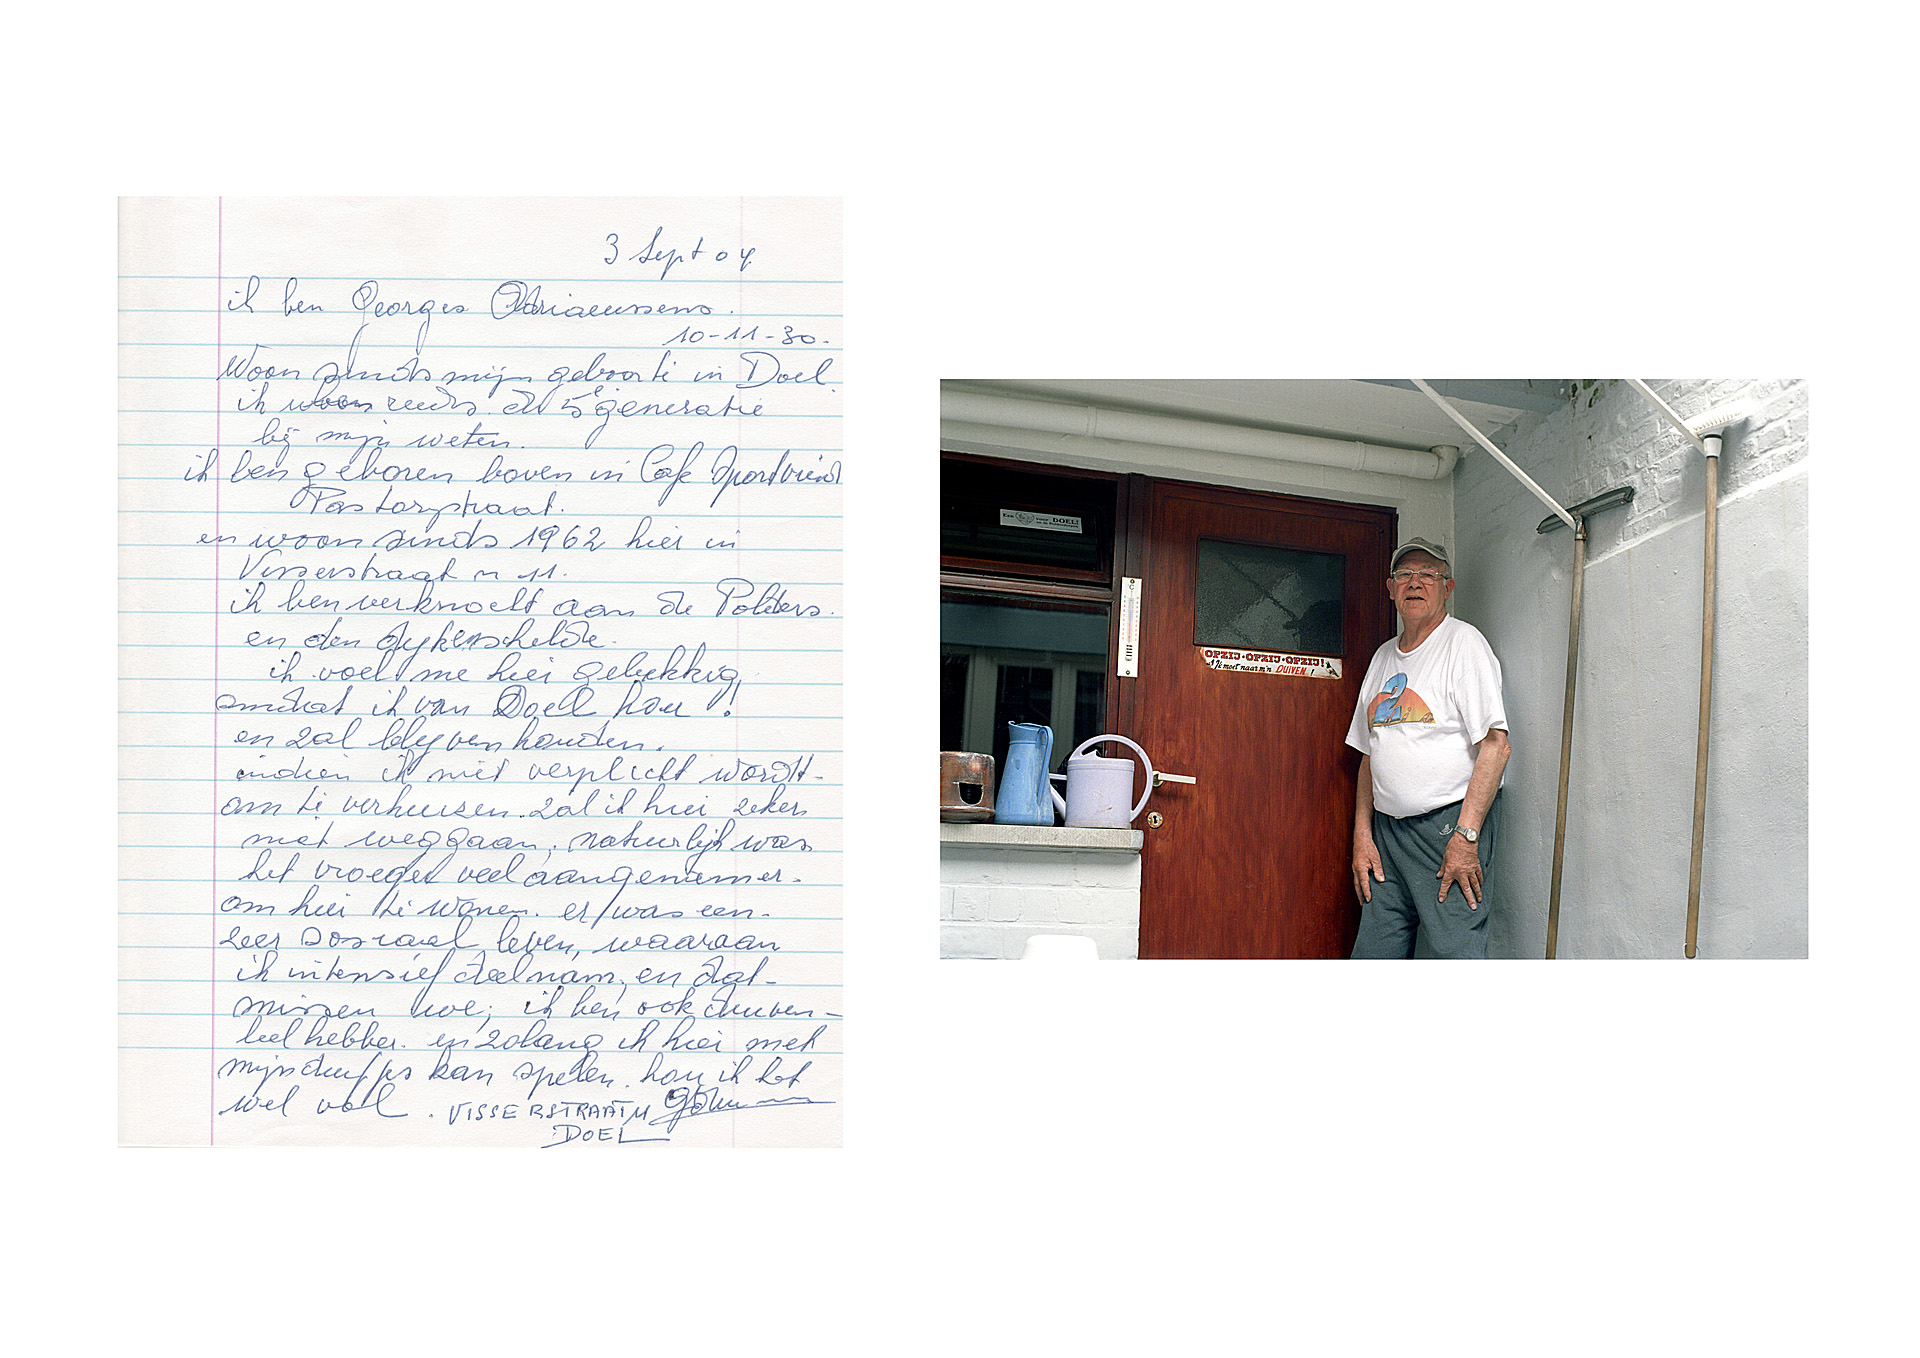 3 Sept 04
ik ben Georges Adriaenssens.
10-11-30.
Woon sinds mijn geboorte in Doel
ik woon reeds de 5e generatie
bij mijn weten.
ik ben geboren boven in Cafe Sportvriend
Pastorystraat.
en woon sinds 1962 hier in
Visserstraat n 11.
ik ben verknocht aan de Polders.
en den
ik voel me hier gelukkig
omdat ik van Doel hou !
en zal blyven houden.
indien ik niet verplicht wordt-
om te verhuizen. zal ik hier zeker
niet weggaan, natuurlijk was
het vroeger veel aangenamer-
om hier te wonen. er was een-
zeer sociaal leven, waaraan
ik intensief deelnam, en dat-
missen we; ik ben ook duiven-
liefhebber. en zolang ik hier met
mijn duifjes kan spelen. hou ik het
wel vol. VISSERSTRAAT 11
DOEL
Een voor DOEL!
OPZIJ·OPZIJ·OPZIJ!
'k moet naar m'n DUIVEN !